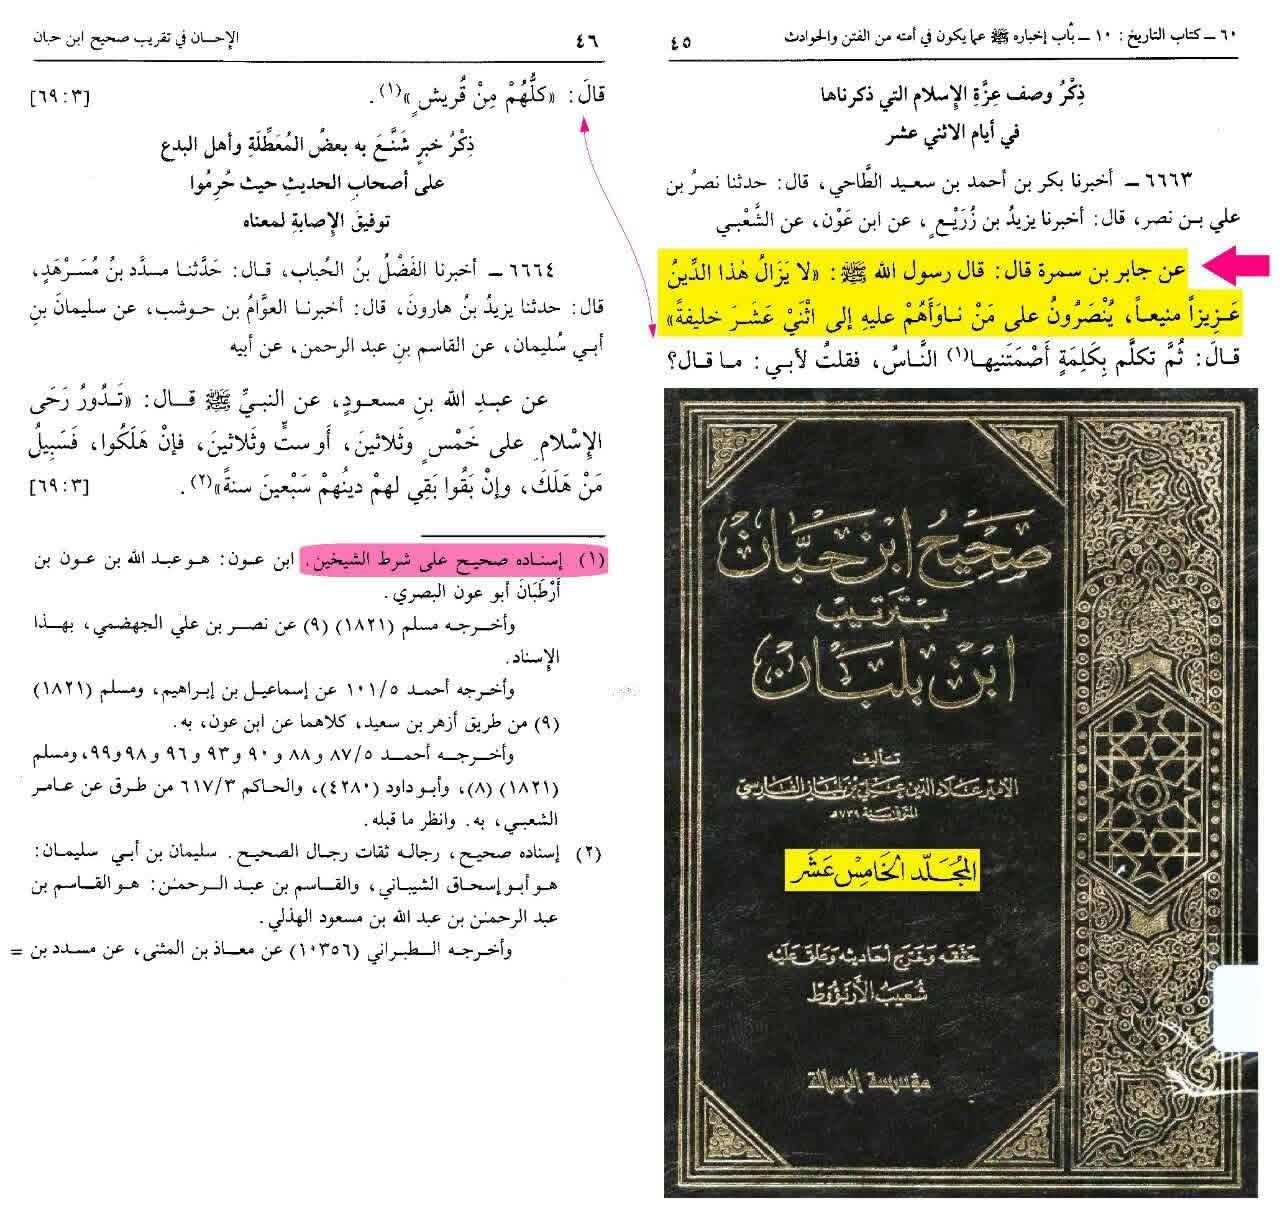 ٦٠ ـ كتاب التاريخ : ١٠ ـ بأب إخباره ﷺ عما يكون في أمته من الفتن والحوادث
٤٥
ذِكْرُ وصف عِزَّةِ الإِسلام التي ذكرناها
في أيام الاثني عشر
٦٦٦٣ ـ أخبرنا بكر بن أحمد بن سعيد الطَّاحي، قال: حدثنا نصرُ بن
علي بـن نصر، قال: أخبرنا يزيدُ بن زُرَيْـعٍ، عن ابن عَوْن، عن الشَّعْبـي
عن جابر بن سمرة قال: قال رسول الله ﷺ: «لا يَزَالُ هٰذا الدِّينُ
عَـزِيزاً منيعـاً، يُنْصَرُونُ على مَنْ نـاوَأَهُمْ عليهِ إلى اثْنَيْ عَشَـرَ خليفةً»
قـالَ: ثُمَّ تكلَّم بِكَلِمَةٍ أَصْمَتَنيهـا(١) النَّاسُ، فقلتُ لأبي: مـا قـال؟
صَحِيْحُ ابْنِ حِبَّان
بِتَرتيبِ
ابْنِ بلبَان
تأليف
الأمير علاء الدين علي بن بلبان الفارسي
المتوفى سنة ٧٣٩ هـ
المجلّد الخَامِس عَشَر
حَقّقه وَخَرّج أحاديثه وَعَلّق عَليْه
شعيب الأرنؤوط
مؤسسة الرسالة
٤٦
الإحسان في تقريب صحيح ابن حبان
قالَ: «كلُّهُمْ مِنْ قُريشٍ»(١). [٣ : ٦٩]
ذِكْرُ خبرٍ شَنَّعَ به بعضُ المُعَطِّلَةِ وأهل البدع
على أصحابِ الحديثِ حيث حُرِمُوا
توفيقَ الإِصابةِ لمعناه
٦٦٦٤ ـ أخبرنا الفَضْلُ بنُ الحُباب، قـال: حَدَّثنـا مسدَّد بنُ مُسَـرْهَدٍ،
قال: حدثنا يزيدُ بنُ هارونَ، قال: أخبرنـا العوَّامُ بن حـوشب، عن سليمانَ بنِ
أبـي سُليمان، عن القاسم بنِ عبد الرحمن، عن أبيه
عن عبـدِ الله بنِ مسعـودٍ، عن النبـيِّ ﷺ قـال: «تَـدُورُ رَحَى
الإِسْلامِ على خَمْسٍ وثَلاثينَ، أَو ستٍّ وثَلاثينَ، فإنْ هَلَكُوا، فَسَبِيلُ
مَنْ هَلَكَ، وإنْ بَقُوا بَقِي لهمْ دينُهمْ سَبْعينَ سنةً»(٢). [٣ : ٦٩]
(١) إسناده صحيح على شرط الشيخين. ابن عون: هو عبد الله بن عون بن
أَرْطَبَانَ أبو عون البصري.
وأخـرجه مسلم (١٨٢١) (٩) عن نصـر بن علي الجهضمي، بهـذا
الإِسناد.
وأخـرجه أحمـد ١٠١/٥ عن إسماعيل بن إبـراهيم، ومسلم (١٨٢١)
(٩) من طريق أزهر بن سعيد، كلاهما عن ابن عون، به.
وأخرجـه أحمـد ٨٧/٥ و ٨٨ و ٩٠ و ٩٣ و ٩٦ و ٩٨ و ٩٩، ومسلم
(١٨٢١) (٨)، وأبو داود (٤٢٨٠)، والحاكم ٦١٧/٣ من طرق عن عامر
الشعبي، به. وانظر ما قبله.
(٢) إسناده صحيح، رجالـه ثقات رجال الصحيح. سليمان بن أبـي سليمان:
هو أبو إسحاق الشيباني، والقاسم بن عبد الـرحمٰن: هـو القـاسم بن
عبد الرحمٰن بن عبد الله بن مسعود الهذلي.
وأخـرجه الطبـراني (١٠٣٥٦) عن معـاذ بن المثنى، عن مسـدد بن =